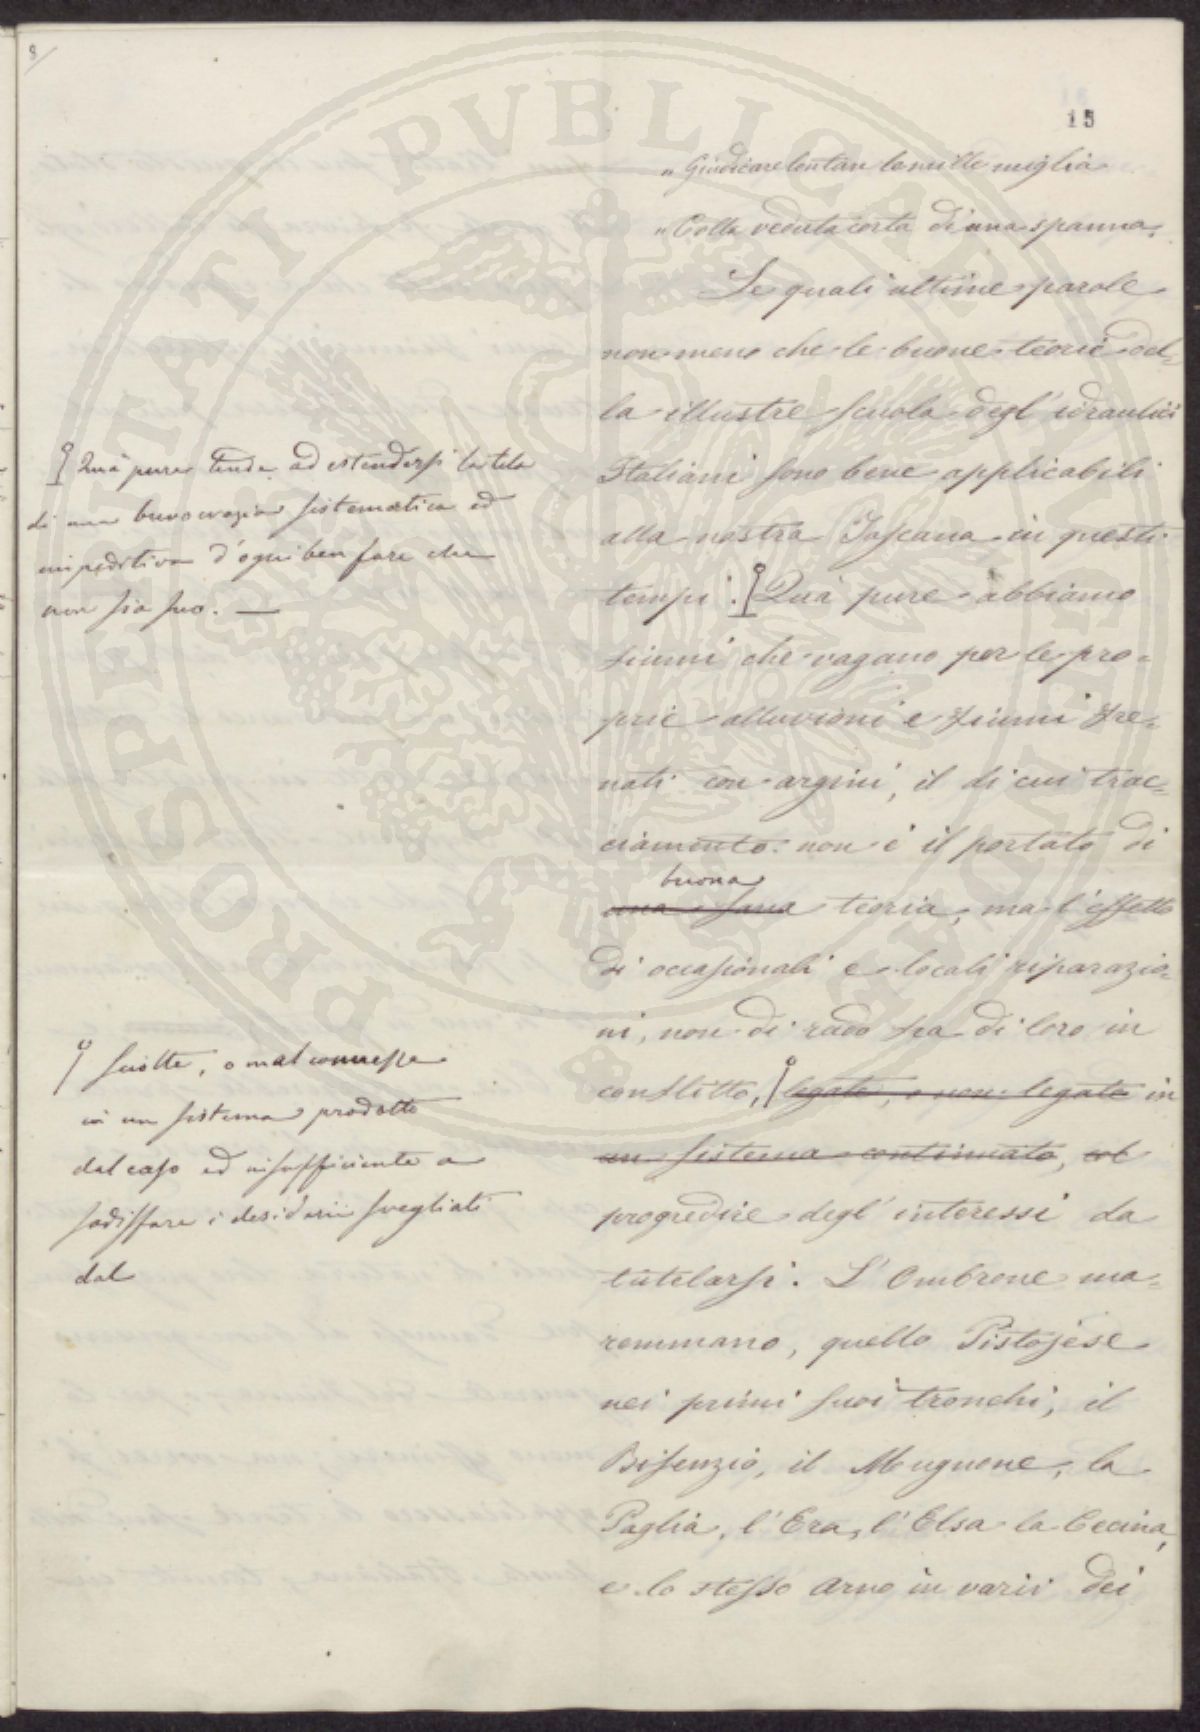 8/
15
„ Giudicare lontan le mille miglia
„ Colla veduta corta d'una spanna.
Le quali ultime parole
non meno che le buone teorie del-
la illustre scuola degl'idraulici
Italiani sono bene applicabili
alla nostra Toscana in questi
tempi. Quà pure abbiamo
fiumi che vagano per le pro-
prie alluvioni e fiumi fre-
nati con argini, il di cui trac-
ciamento non è il portato di
buona
una sana teoria, ma l'effetto
di occasionali e locali riparazio-
ni, non di rado fra di loro in
conflitto, legate, o non legate in
un sistema continuato, col
progredire degl'interessi da
tutelarsi. L'Ombrone ma-
remmano, quello Pistojese
nei primi suoi tronchi, il
Bisenzio, il Mugnone, la
Paglia, l'Era, l'Elsa la Cecina,
e lo stesso Arno in varii dei
Quà pure tende ad estendersi la tela
di una burocrazia sistematica ed
impeditiva d'ogni ben fare che
non sia suo. —
sciolte, o mal connesse
in un sistema prodotto
dal caso ed insufficiente a
sodisfare i desiderii svegliati
dal
PROSPERITATI PVBLICAE AVGENDAE